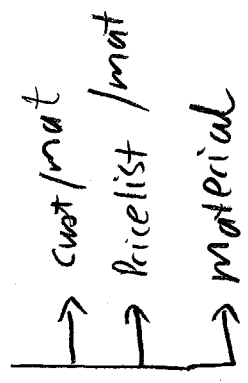 cust/mat
Pricelist /mat
Material